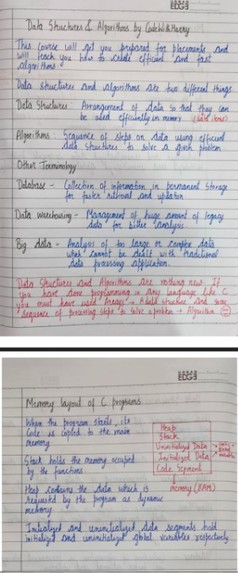 Data Structures & Algorithms by CodeWithHarry
This course will get you prepared for placements and
will teach you how to create efficient and fast
algorithms.
Data structures and algorithms are two different things.
Data Structures : Arrangement of data so that they can
be used efficiently in memory (data items)
Algorithms : Sequence of steps on data using efficient
data structures to solve a given problem
Other Terminology
Database - Collection of information in permanent storage
for faster retrieval and updation
Data warehousing - Management of huge amount of legacy
data for better analysis
Big data - Analysis of too large or complex data
which cannot be dealt with traditional
data processing application.
Data Structures and Algorithms are nothing new. If
you have done programming in any language like C
you must have used Arrays → A data structure and some
sequence of processing steps to solve a problem → Algorithm
Memory layout of C programs
When the program starts, its
code is copied to the main
memory
Stack holds the memory occupied
by the functions.
Heap contains the data which is
requested by the program as dynamic
memory.
Initialized and uninitialized data segments hold
initialized and uninitialized global variables respectively.
Heap
Stack
Uninitialized Data
Initialized Data
Code Segment
memory (RAM)